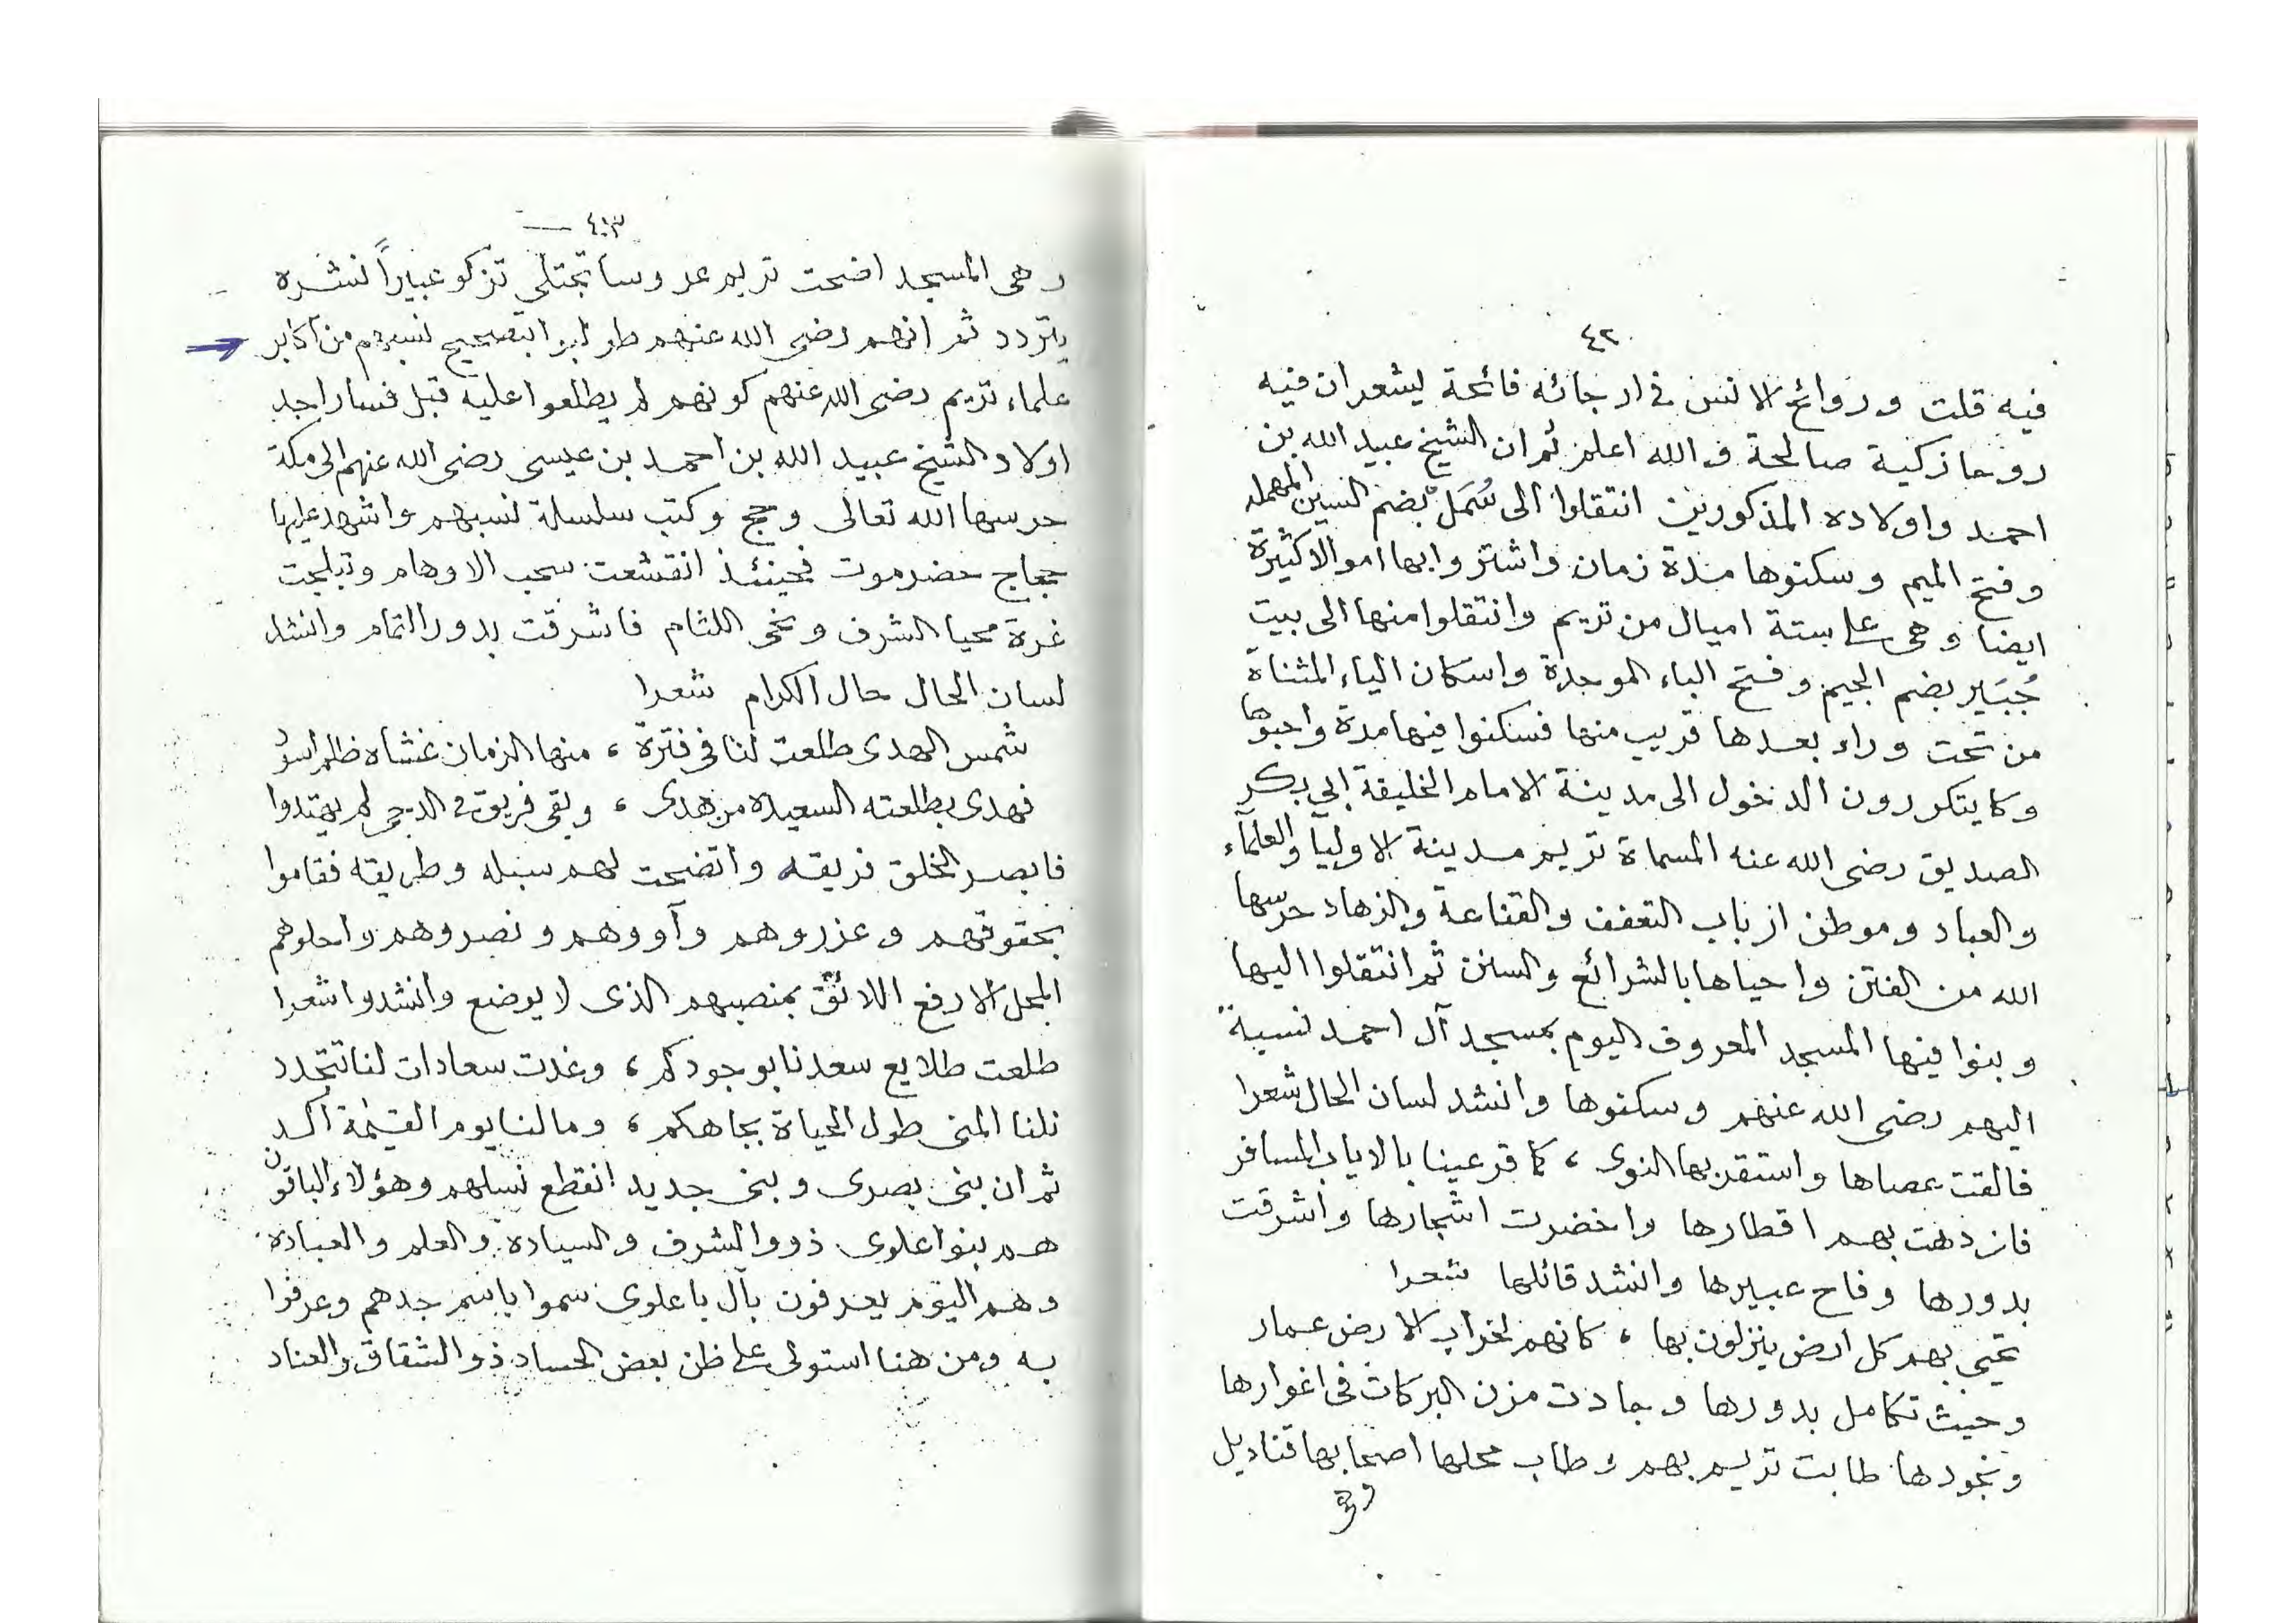 ٤٢
فيه قلت وروائح الانس في ارجائه فائحة ليشعر ان فيه
روحا زكية صالحة والله اعلم ثم ان الشيخ عبيد الله بن
احمد واولاده المذكورين انتقلوا الى سُمَل بضم السين المهملة
وفتح الميم وسكنوها مدة زمان واشتروا بها اموالا كثيرة
ايضا وهي على ستة اميال من تريم وانتقلوا منها الى بيت
جُبَير بضم الجيم وفتح الباء الموحدة واسكان الياء المثناة
من تحت وراء بعدها قريب منها فسكنوا فيها مدة واحبوها
وكا يتكررون الدخول الى مدينة الامام الخليفة ابي بكر
الصديق رضى الله عنه المسماة تريم مدينة الاوليآ والعلمآء
والعباد وموطن ارباب التعفف والقناعة والزهاد حرسها
الله من الفتن واحياها بالشرائع والسنن ثم انتقلوا اليها
وبنوا فيها المسجد المعروف اليوم بمسجد آل احمد نسبة
اليهم رضى الله عنهم وسكنوها وانشد لسان الحال شعرا
فالقت عصاها واستقر بها النوى ، كما قر عينا بالاياب المسافر
فازدهت بهم اقطارها واخضرت اشجارها واشرقت
بدورها وفاح عبيرها وانشد قائلها شعرا
تحيي بهم كل ارض ينزلون بها ، كانهم لخراب الارض عمار
وحيث تكامل بدورها وجادت مزن البركات في اغوارها
ونجودها طابت تريم بهم وطاب محلها اصحابها قناديل
وهي
٤٣
وهي المسجد اضحت تريم عروسا تجتلي تزكو عبيراً نشره
يتردد ثم انهم رضى الله عنهم طولبوا بتصحيح نسبهم من اكابر
علماء تريم رضى الله عنهم كونهم لم يطلعوا عليه قبل فسار احد
اولاد الشيخ عبيد الله بن احمد بن عيسى رضى الله عنهم الى مكة
حرسها الله تعالى وحج وكتب سلسلة نسبهم واشهد عليها
حجاج حضرموت فحينئذ انقشعت سحب الاوهام وتبلجت
غرة محيا الشرف ونحى اللثام فاشرقت بدور التمام وانشد
لسان الحال حال الكرام شعرا
شمس الهدى طلعت لنا في فترة ، منها الزمان غشاه ظلم اسود
فهدى بطلعته السعيدة من هدى ، وبقى فريق في الدجى لم يهتدوا
فابصر الخلق فريقه واتضحت لهم سبله وطريقه فقاموا
بحقوقهم وعزروهم وآووهم ونصروهم واحلوهم
المحل الارفع اللائق بمنصبهم الذى لا يوضع وانشدوا شعرا
طلعت طلايع سعدنا بوجودكم ، وغدت سعادات لنا تتجدد
نلنا المنى طول الحياة بجاهكم ، ومالنا يوم القيمة آكد
ثم ان بنى بصرى وبنى جديد انقطع نسلهم وهؤلاء الباقون
هم بنوا علوى ذووا الشرف والسيادة والعلم والعبادة
وهم اليوم يعرفون بآل باعلوى سموا باسم جدهم وعرفوا
به ومن هنا استولى على ظن بعض الحساد ذو الشقاق والعناد